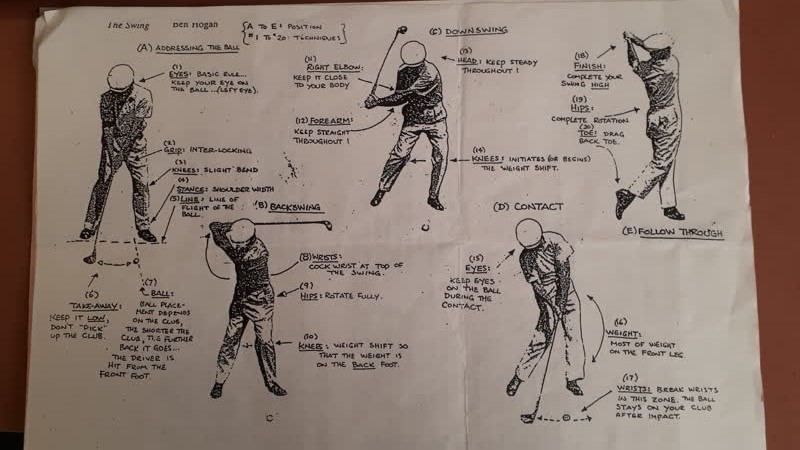 The Swing Ben Hogan
{A TO E: POSITION
#1 TO #20: TECHNIQUES}
(A) ADDRESSING THE BALL
(1)
EYES: BASIC RULE...
KEEP YOUR EYE ON
THE BALL...(LEFT EYE).
(2)
GRIP: INTER-LOCKING
(3)
KNEES: SLIGHT BEND
(4)
STANCE: SHOULDER WIDTH
(5) LINE: LINE OF
FLIGHT OF THE
BALL.
(6)
TAKE-AWAY:
KEEP IT LOW,
DON'T "PICK"
UP THE CLUB.
(7)
BALL:
BALL PLACE-
MENT DEPENDS
ON THE CLUB,
THE SHORTER THE
CLUB, THE FURTHER
BACK IT GOES...
THE DRIVER IS
HIT FROM THE
FRONT FOOT.
(B) BACKSWING
(8) WRISTS:
COCK WRIST AT TOP OF
THE SWING.
(9)
HIPS: ROTATE FULLY.
(10)
KNEES: WEIGHT SHIFT SO
THAT THE WEIGHT IS
ON THE BACK FOOT.
C
(C) DOWNSWING
(11)
RIGHT ELBOW:
KEEP IT CLOSE
TO YOUR BODY
(12) FOREARM:
KEEP STRAIGHT
THROUGHOUT!
(13)
HEAD: KEEP STEADY
THROUGHOUT!
(14)
KNEES: INITIATES (OR BEGINS)
THE WEIGHT SHIFT.
C
(D) CONTACT
(15)
EYES:
KEEP EYES
ON THE BALL
DURING THE
CONTACT.
(16)
WEIGHT:
MOST OF WEIGHT
ON THE FRONT LEG.
(17)
WRISTS: BREAK WRISTS
IN THIS ZONE. THE BALL
STAYS ON YOUR CLUB
AFTER IMPACT.
(18)
FINISH:
COMPLETE YOUR
SWING HIGH
(19)
HIPS:
COMPLETE ROTATION.
(20)
TOE: DRAG
BACK TOE.
(E) FOLLOW THROUGH